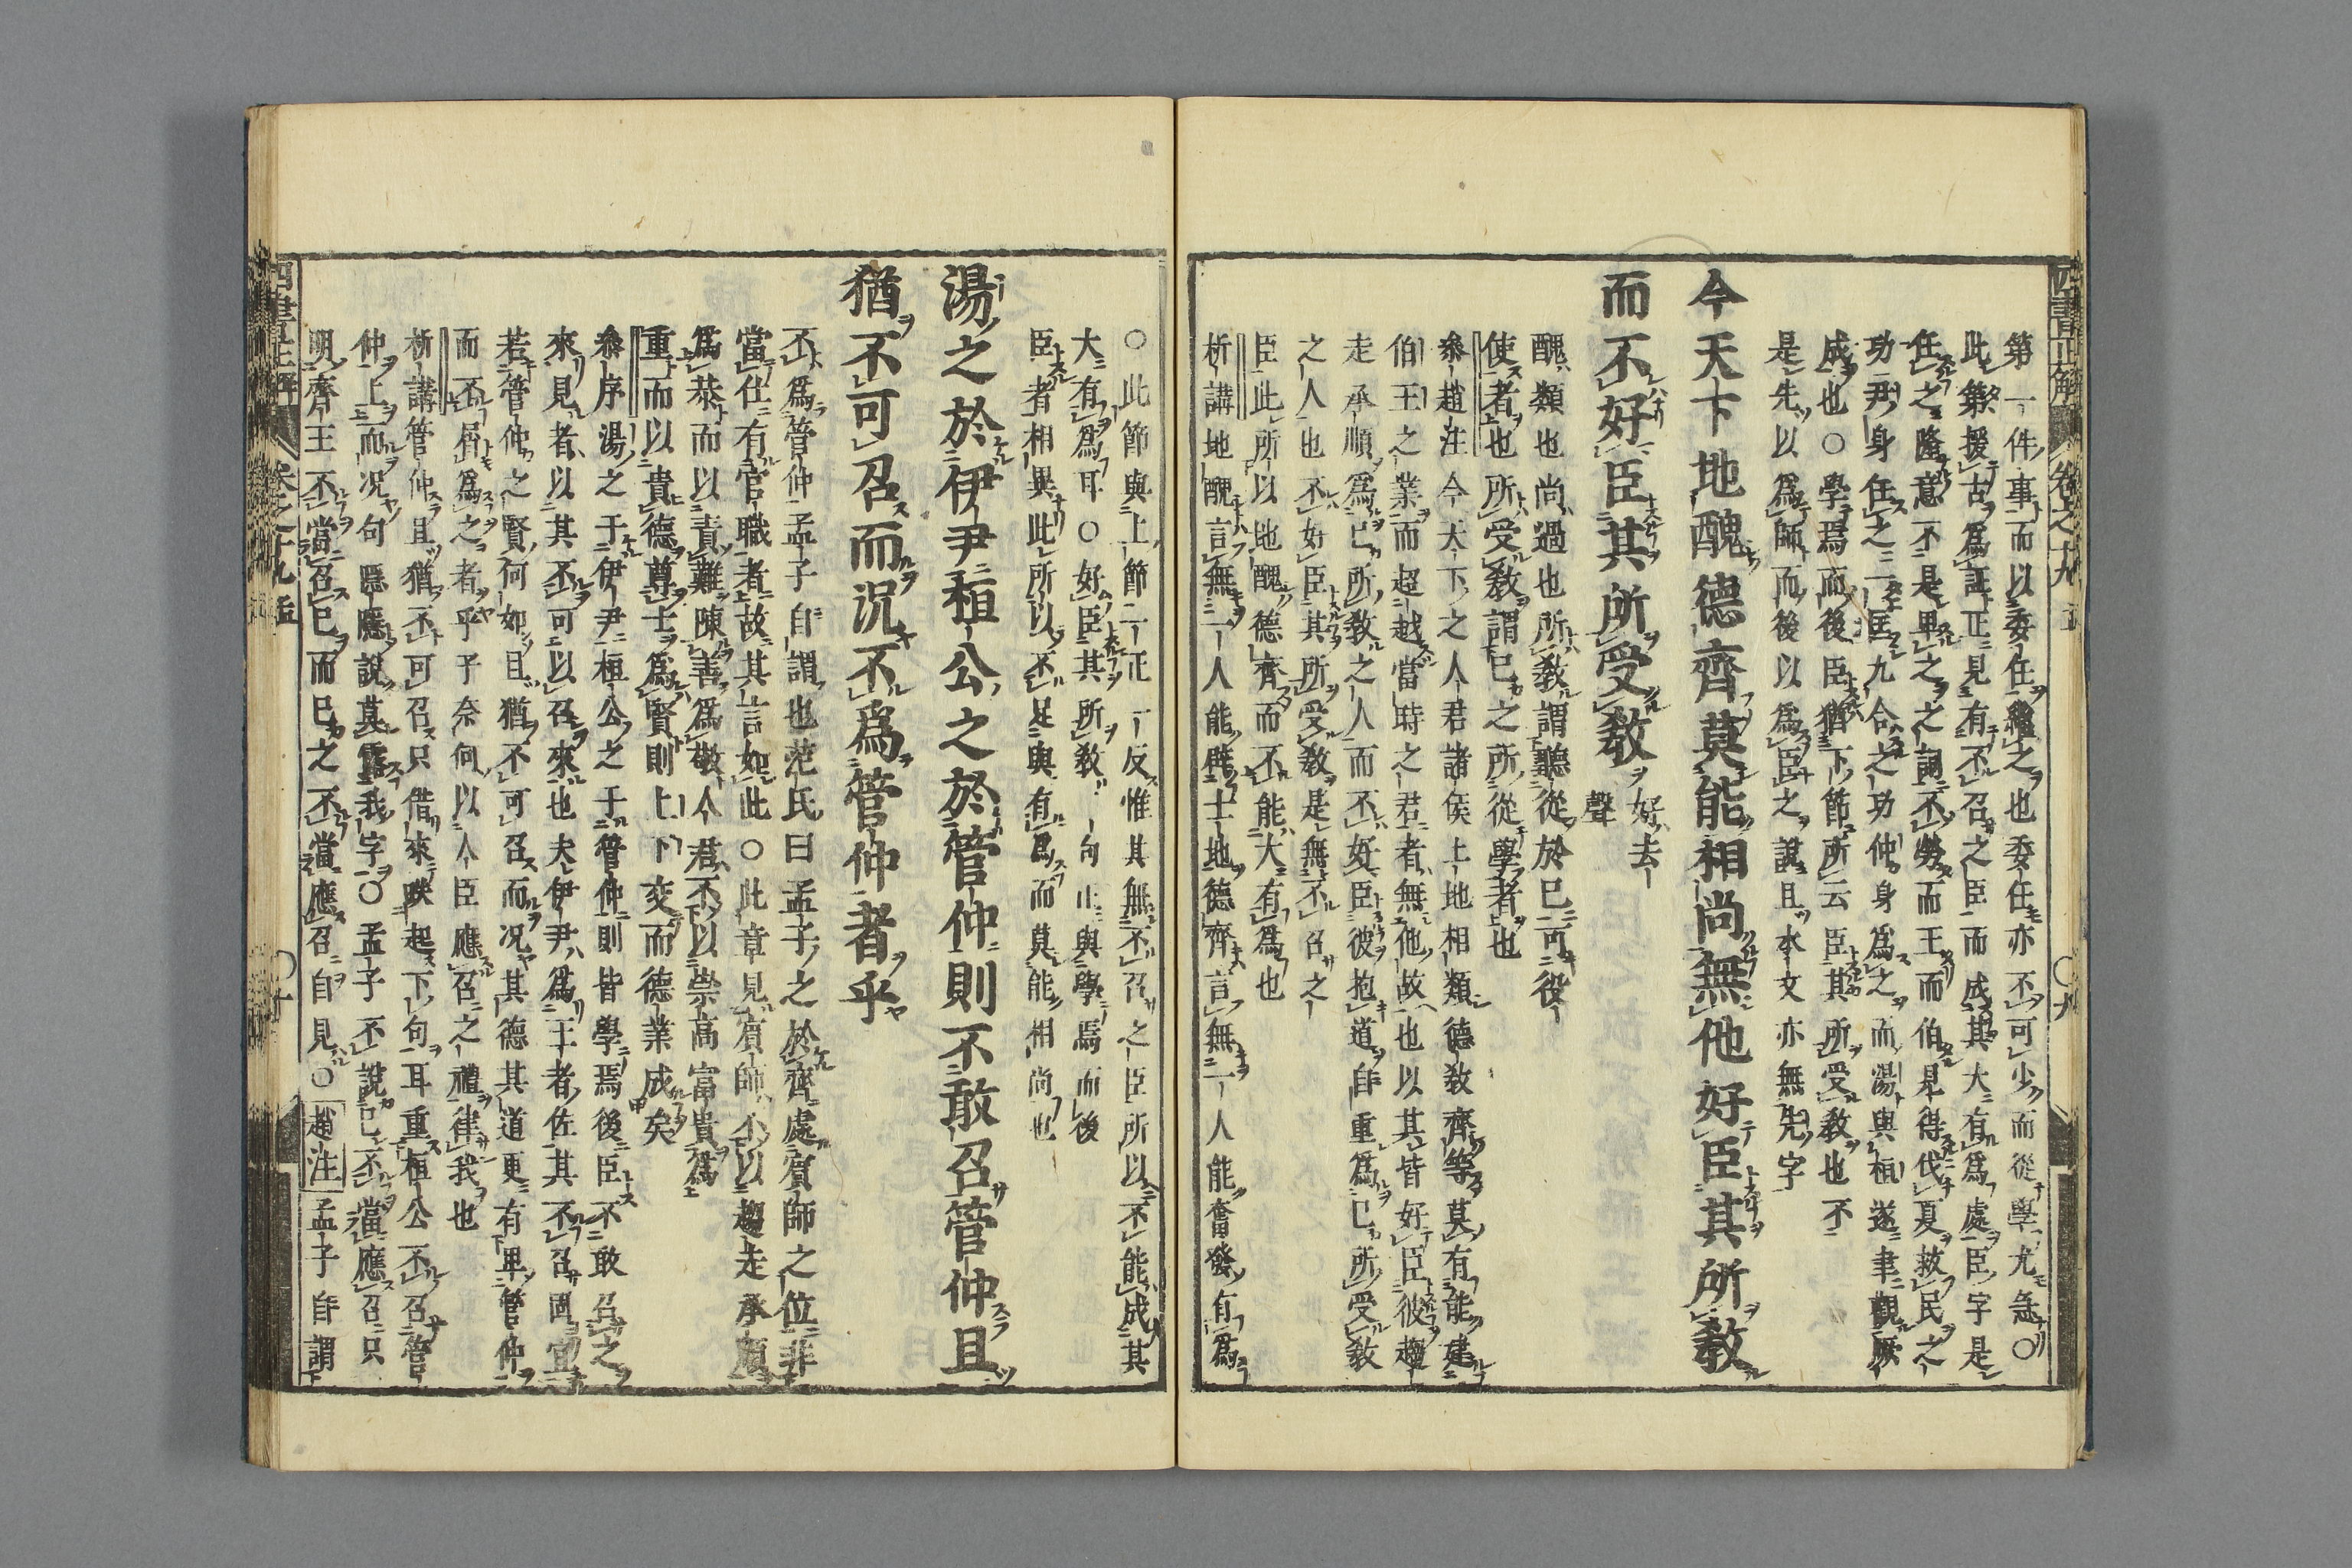 第一件事而以委任繼之也委任亦不可少而從學尤急○
此第援古爲証正見有不召之臣而成其大有爲處臣字是
任之隆意不是卑之之詞不勞而王而伯見得伐夏救民之
功尹身任之一匡九合之功仲身爲之而湯與桓遂聿觀厥
成也○學焉而後臣猶下節所云臣其所受教也不
是先以爲師而後以爲臣之說且本文亦無先字
今天下地醜德齊莫能相尚無他好臣其所教
而不好臣其所受教
好去
聲
醜類也尚過也所教謂聽從於己可役
使者也所受教謂己之所從學者也
參趙注今天下之人君諸侯土地相類德教齊等莫有能建
伯王之業而超越當時之君者無他故也以其皆好臣彼趨
走承順爲己所教之人而不好臣彼抱道自重爲己所受教
之人也不好臣其所受教是無不召之
臣此所以地醜德齊而不能大有爲也
析講地醜言無一人能辟土地德齊言無一人能奮發有爲
○此節與上節二正一反惟其無不召之臣所以不能成其
大有爲耳○好臣其所教一句正與學焉而後
臣者相異此所以不足與有爲而莫能相尚也
湯之於伊尹桓公之於管仲則不敢召管仲且
猶不可召而況不爲管仲者乎
不爲管仲孟子自謂也范氏曰孟子之於齊處賓師之位非
當仕有官職者故其言如此○此章見賓師不以趨走承順
爲恭而以責難陳善爲敬人君不以崇高富貴爲
重而以貴德尊士爲賢則上下交而德業成矣
參序湯之于伊尹桓公之于管仲則皆學焉後臣不敢召之
來見者以其不可以召來也夫伊尹爲王者佐其不召固宜
若管仲之賢何如且猶不可召而况其德其道更有卑管仲
而不屑爲之者乎予奈何以人臣應召之禮律我也
析講管仲且猶不可召只借來映起下句耳重桓公不召管
仲上而况句隱應說莫露我字○孟子不說己不當應召只
明齊王不當召己而已之不當應召自見○趙注孟子自謂
四書正解
卷之十九
孟
○十
四書正解
卷之十九
○九